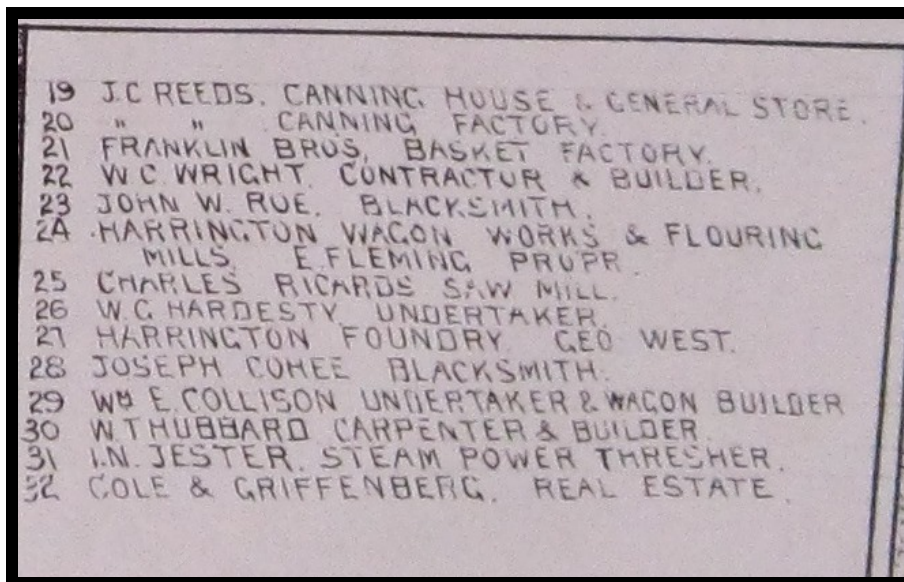 19 J.C REEDS. CANNING HOUSE & GENERAL STORE.
20 " " CANNING FACTORY.
21 FRANKLIN BROS, BASKET FACTORY.
22 W C. WRIGHT. CONTRACTOR & BUILDER.
23 JOHN W. RUE. BLACKSMITH.
24 HARRINGTON WAGON WORKS & FLOURING
MILLS. E. FLEMING PROPR.
25 CHARLES RICARDS SAW MILL.
26 W. G. HARDESTY UNDERTAKER.
27 HARRINGTON FOUNDRY. GEO WEST.
28 JOSEPH COHEE BLACKSMITH.
29 WM E. COLLISON UNDERTAKER & WAGON BUILDER
30 W. T HUBBARD CARPENTER & BUILDER.
31 I.N. JESTER. STEAM POWER THRESHER.
32 COLE & GRIFFENBERG. REAL ESTATE.